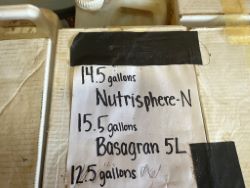 14.5 gallons
Nutrisphere-N
15.5 gallons
Basagran 5L
12.5 gallons